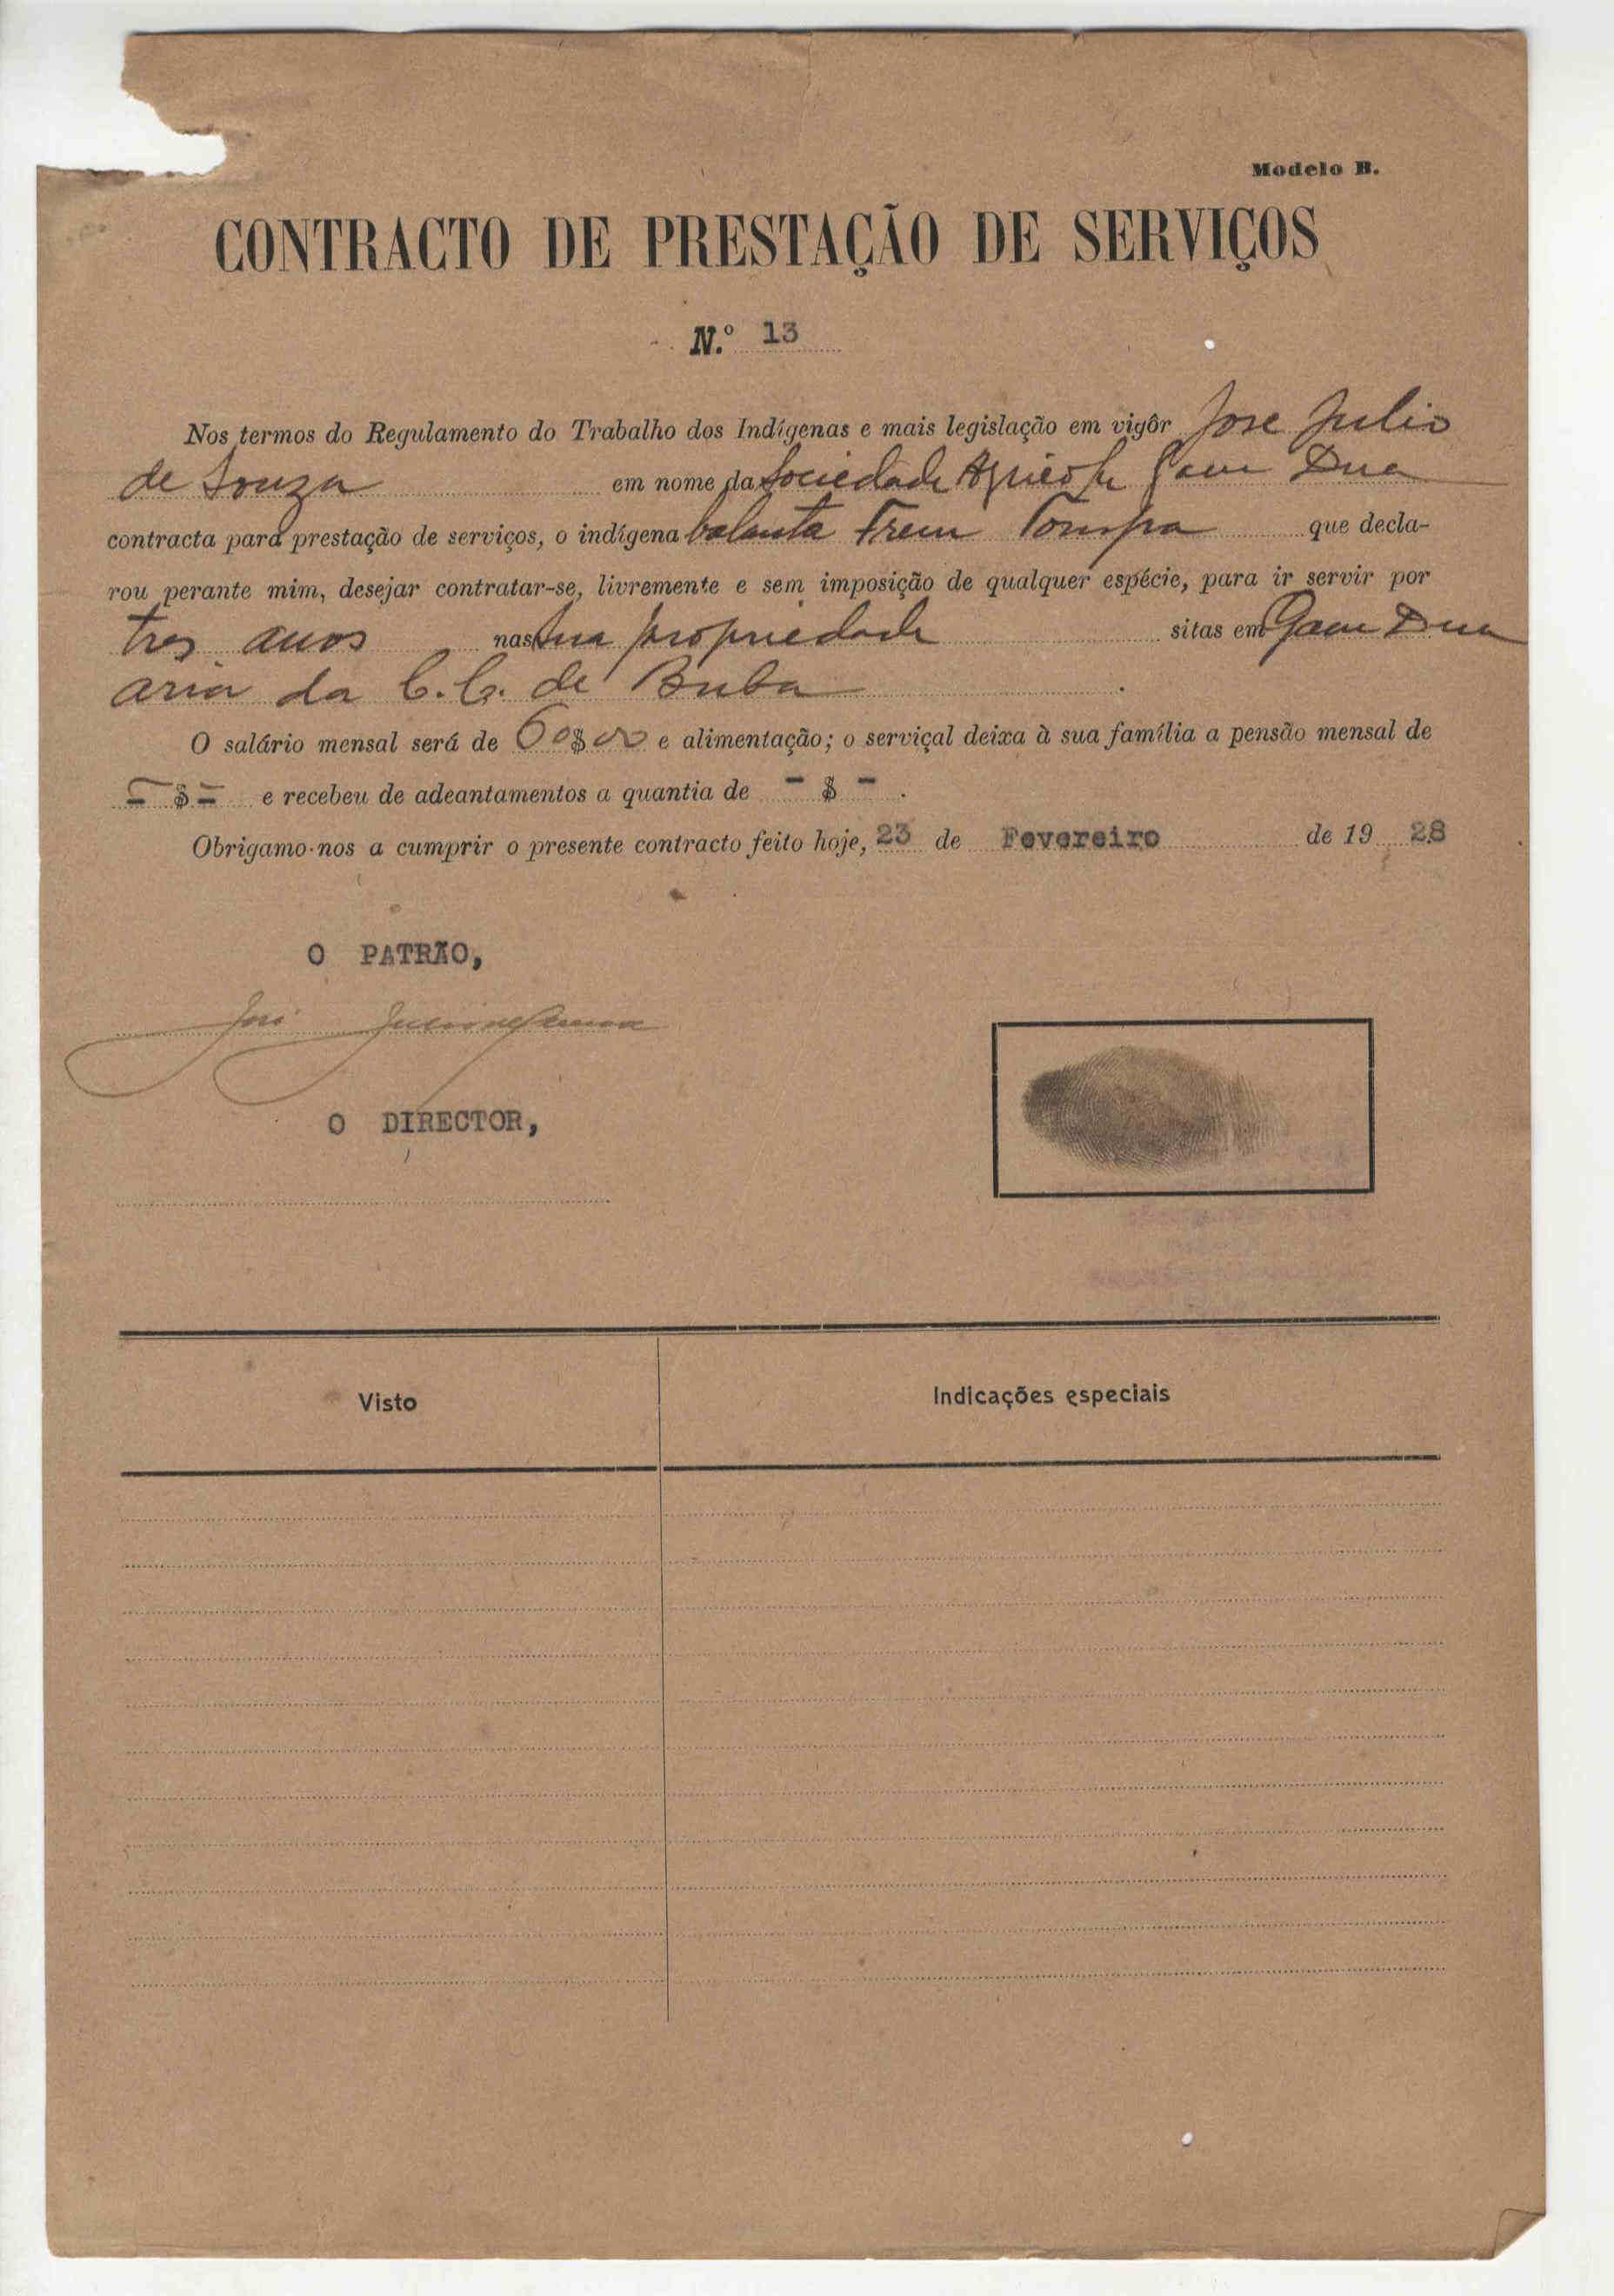 Modelo B.
CONTRACTO DE PRESTAÇÃO DE SERVIÇOS
N.º 13
Nos termos do Regulamento do Trabalho dos Indígenas e mais legislação em vigôr Jose Julio
de Souza em nome da Sociedade Agricola Gam Dua
contracta para prestação de serviços, o indígena balanta Frem Tompa que decla-
rou perante mim, desejar contratar-se, livremente e sem imposição de qualquer espécie, para ir servir por
tres anos nas sua propriedade sitas em Gam Dua
aria da C.C. de Buba
O salário mensal será de 60$00 e alimentação; o serviçal deixa à sua família a pensão mensal de
— $ — e recebeu de adeantamentos a quantia de - $ - .
Obrigamo-nos a cumprir o presente contracto feito hoje, 23 de Fevereiro de 19 28
O PATRÃO,
José Julio de Souza
O DIRECTOR,
Visto Indicações especiais